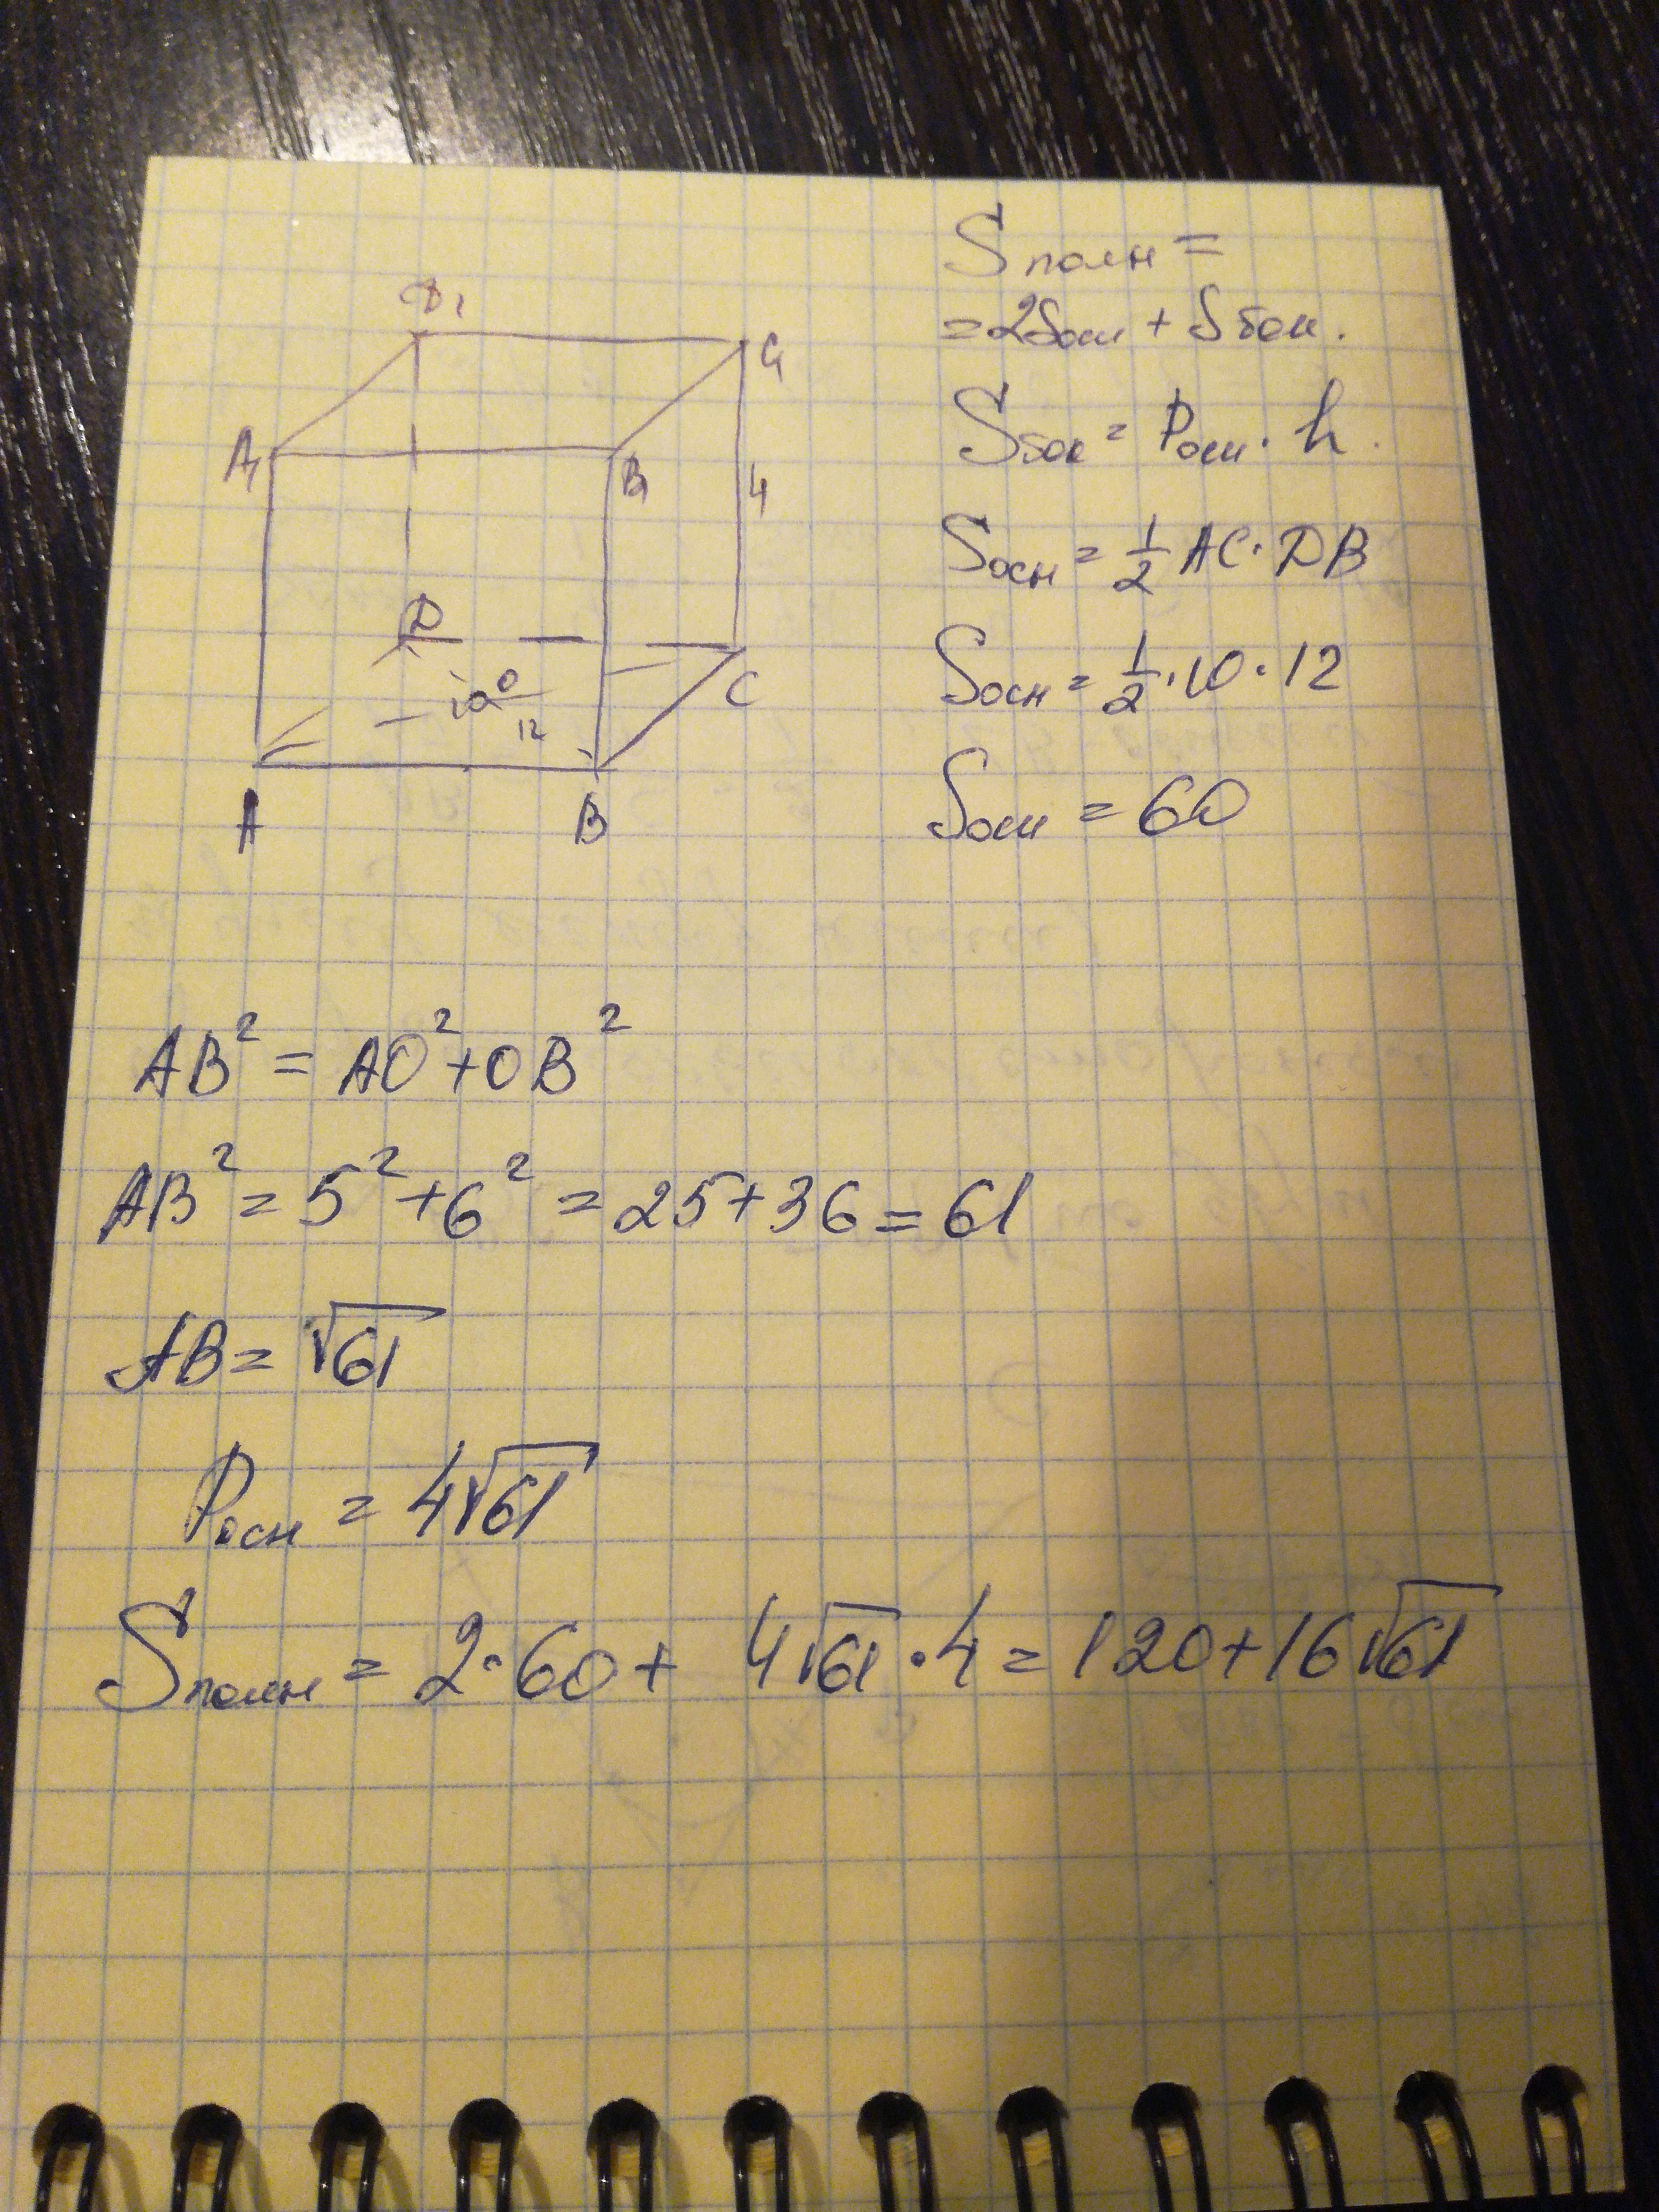 D₁
C₁
A₁
B₁
4
D
O
10
12
C
A
B
Sполн =
= 2Sосн + Sбок.
Sбок = Pосн · h.
Sосн = 1/2 AC · DB
Sосн = 1/2 · 10 · 12
Sосн = 60
AB² = AO² + OB²
AB² = 5² + 6² = 25 + 36 = 61
AB = √61
Pосн = 4√61
Sполн = 2 · 60 + 4√61 · 4 = 120 + 16√61